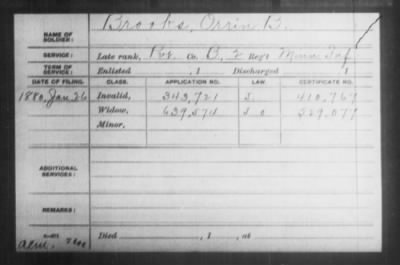 NAME OF SOLDIER: Brooks, Orrin B.
SERVICE: Late rank, Pvt. Co. B, 2 Reg't Minn. Inf.
TERM OF SERVICE: Enlisted , 1 Discharged , 1
DATE OF FILING. CLASS. APPLICATION NO. LAW. CERTIFICATE NO.
1880, Jan. 26 Invalid, 343,721 410,767
Widow, 639,574
Minor,
ADDITIONAL SERVICES:
REMARKS:
Died , 1 , at